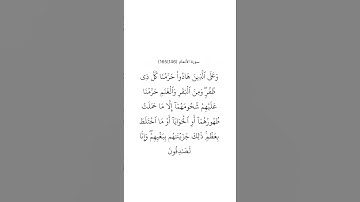 سورة الأنعام (146)(165)
وَعَلَى ٱلَّذِينَ هَادُوا۟ حَرَّمْنَا كُلَّ ذِى
ظُفُرٍ ۖ وَمِنَ ٱلْبَقَرِ وَٱلْغَنَمِ حَرَّمْنَا
عَلَيْهِمْ شُحُومَهُمَآ إِلَّا مَا حَمَلَتْ
ظُهُورُهُمَآ أَوِ ٱلْحَوَايَآ أَوْ مَا ٱخْتَلَطَ
بِعَظْمٍ ۚ ذَٰلِكَ جَزَيْنَـٰهُم بِبَغْيِهِمْ ۖ وَإِنَّا
لَصَـٰدِقُونَ